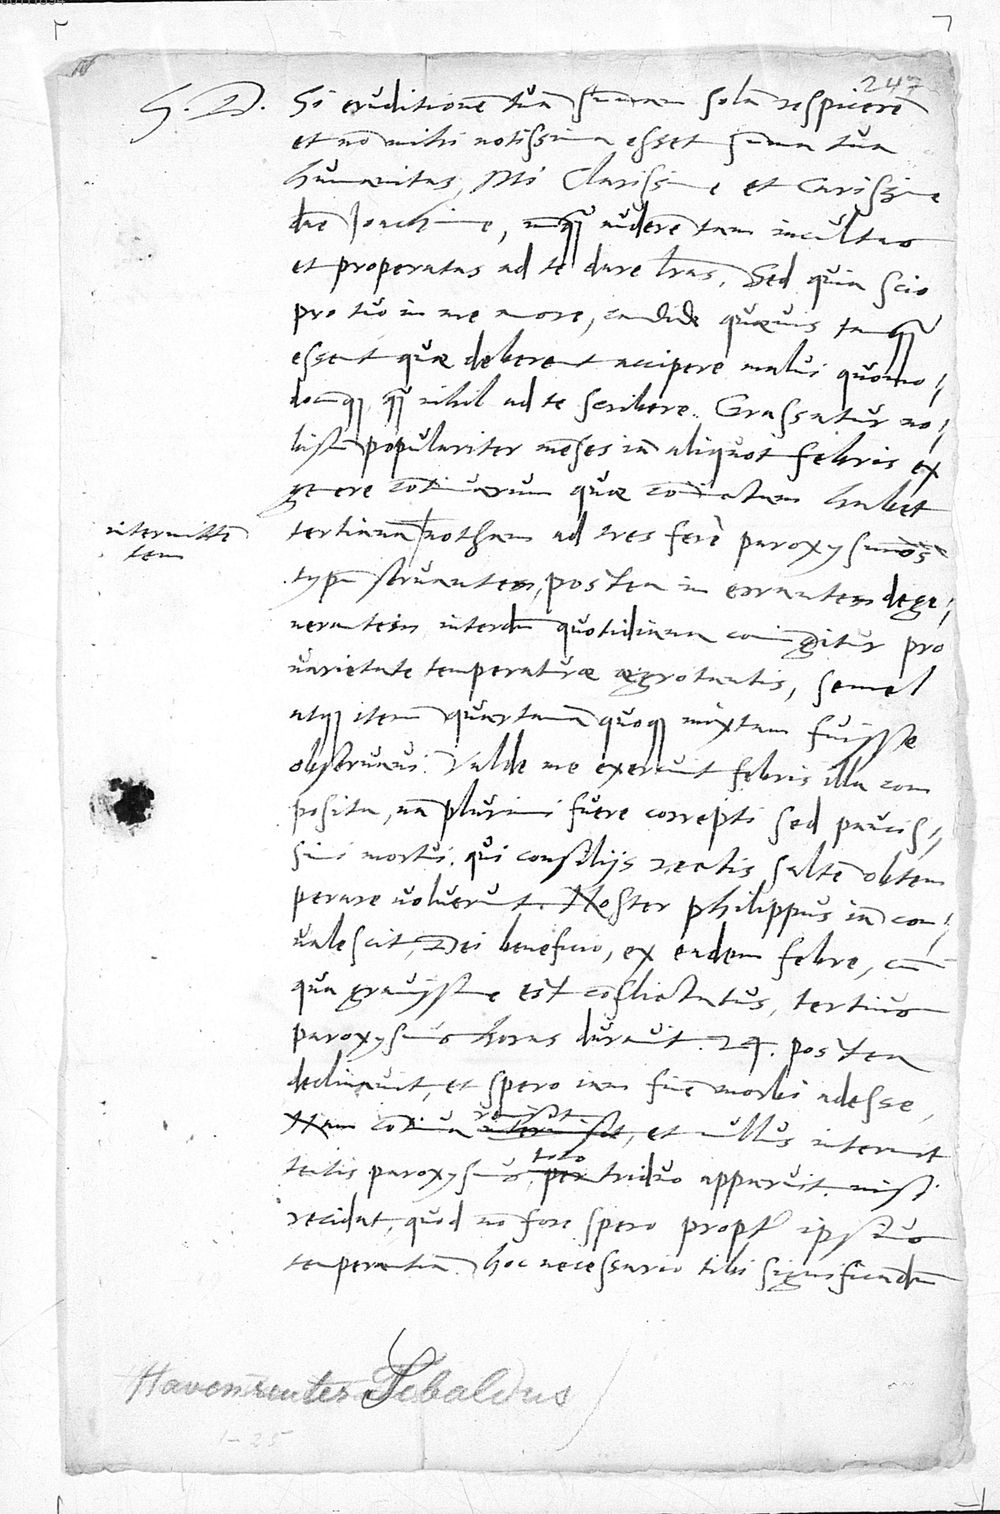 247
S. D. Si eruditionē tuā sūmam solā respicerē
et nō mihi notissima esset summa tua
humanitas, Mi Clarissime et Carissime
dn̄e Joachime, nunq̄ auderē tam incultas
et properatas ad te dare lr̄as, Sed quia scio
pro tuo in me amore, candide quævis tanq̄
essent quæ deberent accipere malui quomo,
docunq̨ q̄ nihil ad te scribere. Grassatur no,
bis populariter mēses iā aliquot febris ex
genere cōtinuarum quæ coniunctam habet
tertianā notham ad tres ferè paroxysmos
intermittē
tem
typū servantem, postea in errantem dege,
nerantem, interdū quotidiana coniungitur pro
varietate temperaturæ ægrotantis, semel
atq̨ iterū quartanā quoq̨ mixtam fuisse
observavi. Valde me exercuit febris illa com
posita, nā plurimi fuere correpti sed paucis,
simi mortui. qui consilijs rectis saltē obtem
perare voluerunt. Noster philippus iā con,
valescit, Dei beneficio, ex eadem febre, cū
qua gravissime est cōflictatus, tertius
paroxysmus horas duravit .24. postea
declinavit, et spero iam finē morbi adesse,
Nam cōtinua remisit, et nullus intermit
tentis paroxysmus toto triduo apparuit. nisi
recidat, quod nō fore spero propt̄ ipsius
temperantiā. hoc necessario tibi significandū
Havenreuter Sebaldus
1-25